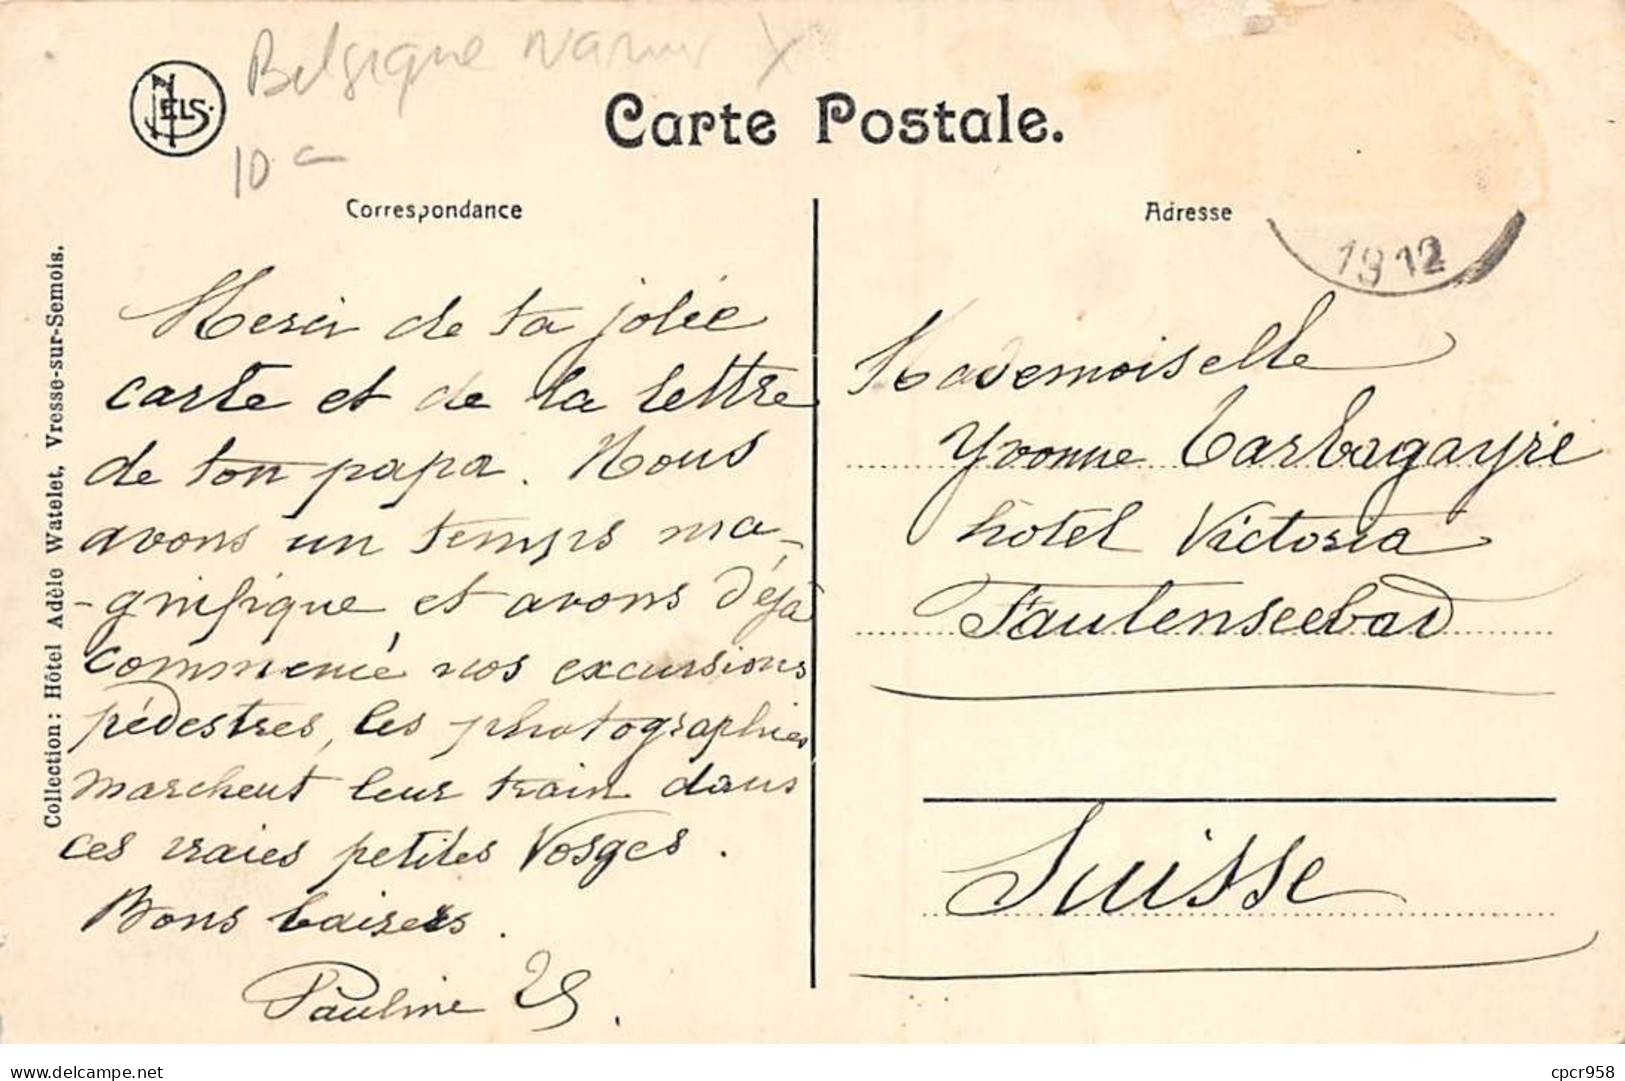 Belgique Namur X
NELS.
10 c
Carte Postale.
Correspondance
Adresse
1912
Collection: Hôtel Adèle Watelet, Vresse-sur-Semois.
Merci de ta jolie
carte et de la lettre
de ton papa. Nous
avons un temps ma-
-gnifique et avons déjà
commencé nos excursions
pédestres, les photographies
marchent leur train dans
ces vraies petites Vosges.
Bons baisers.
Pauline
Mademoiselle
Yvonne Barbagayré
hôtel Victoria
Faulenseebad
Suisse
delcampe.net
cpcr958